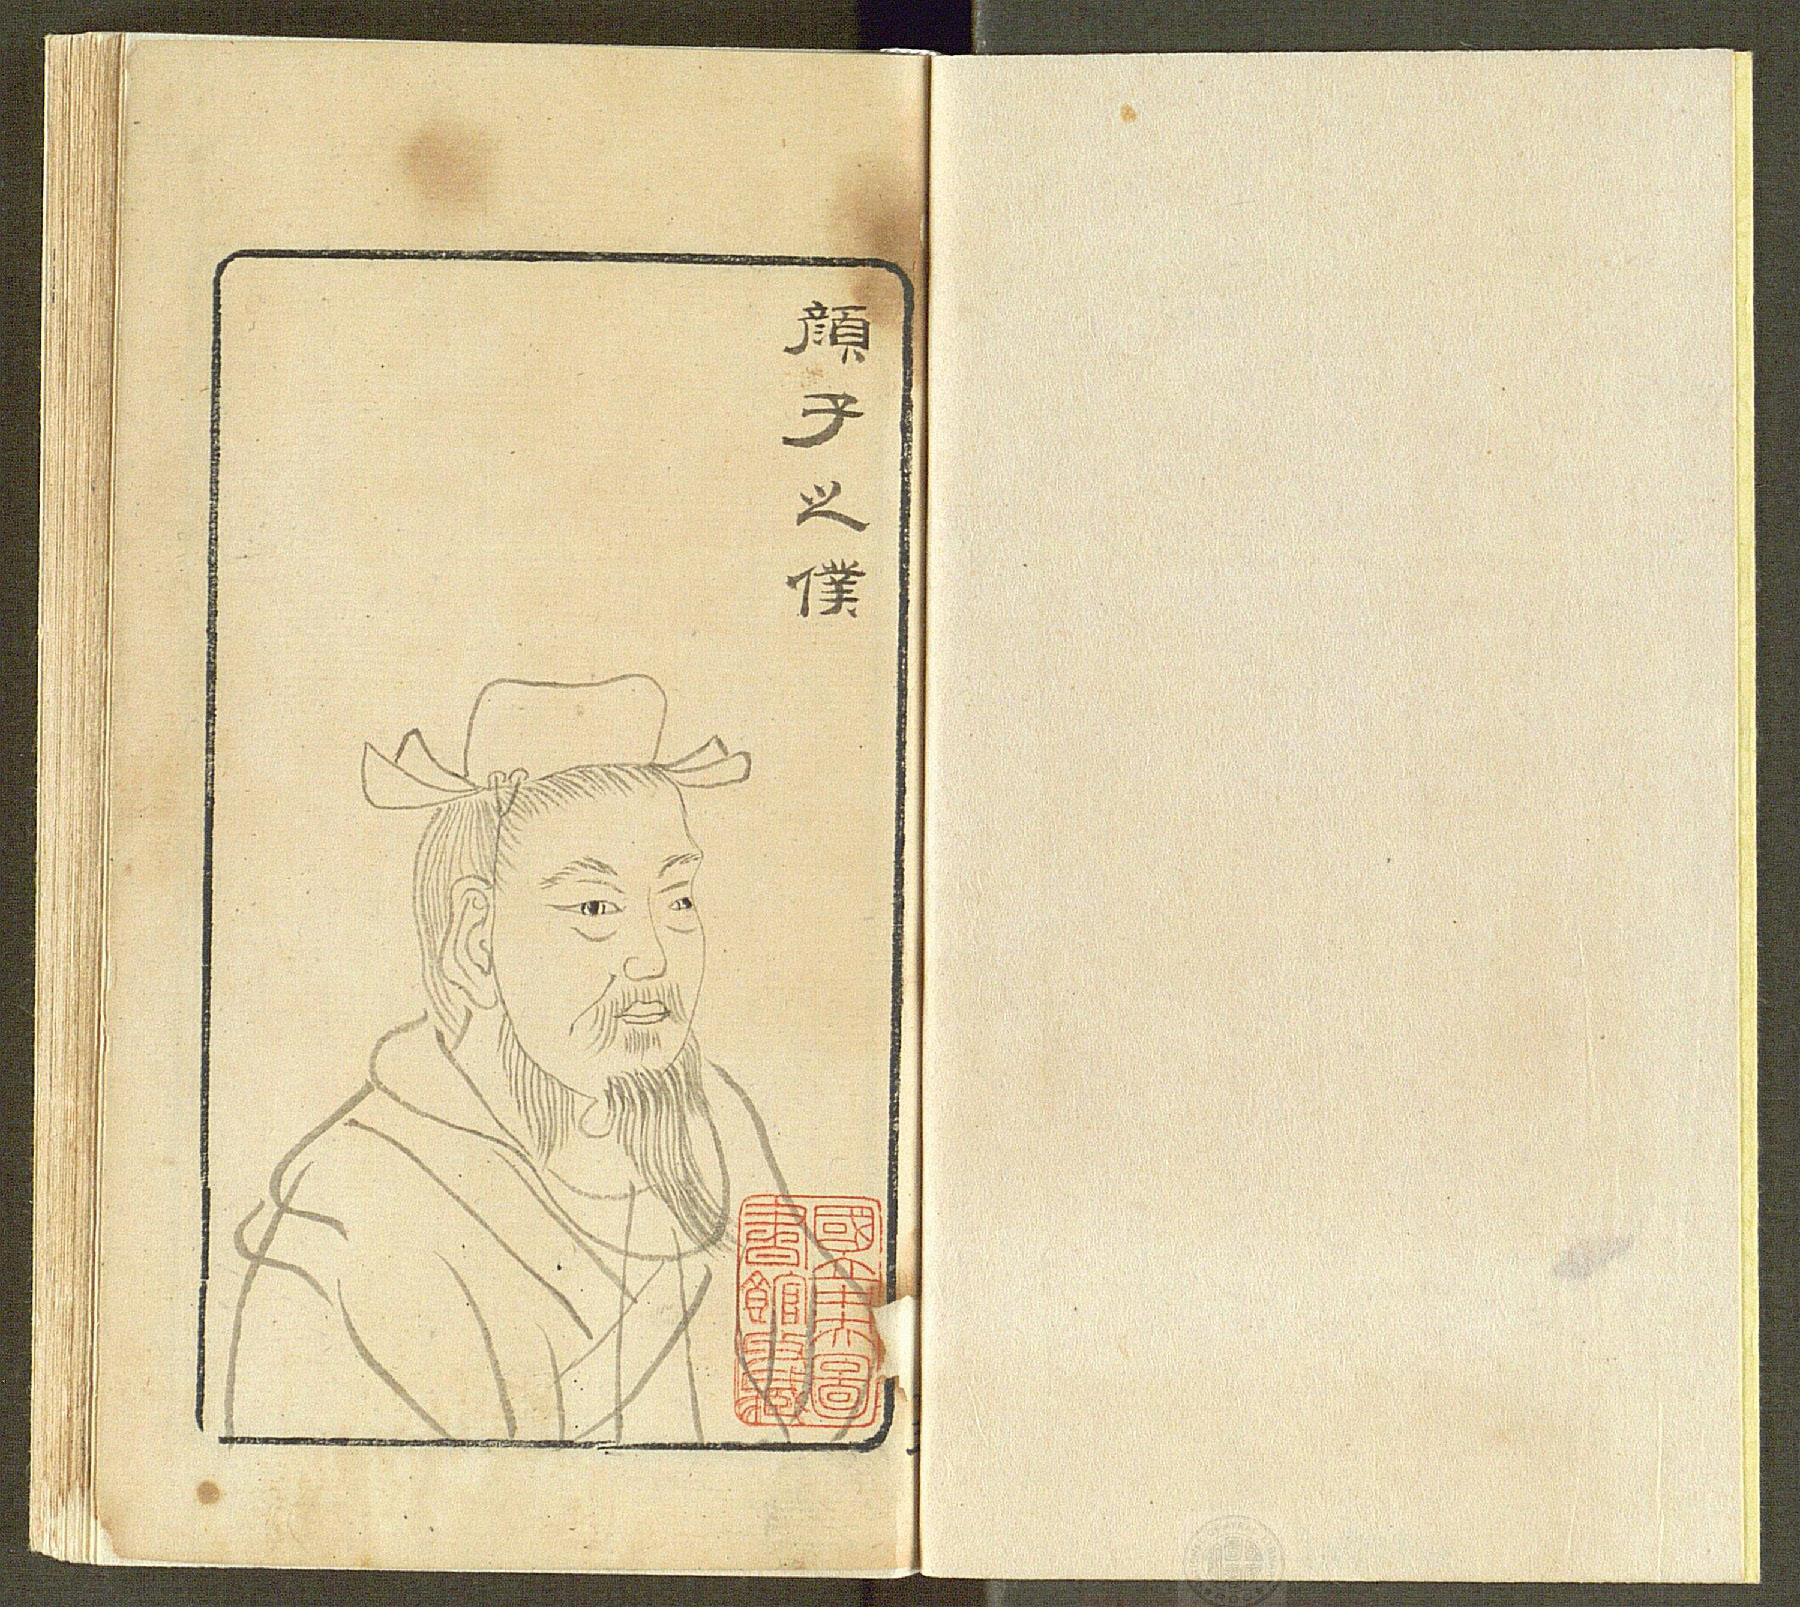 顏子之僕
國立中央圖
書館收藏